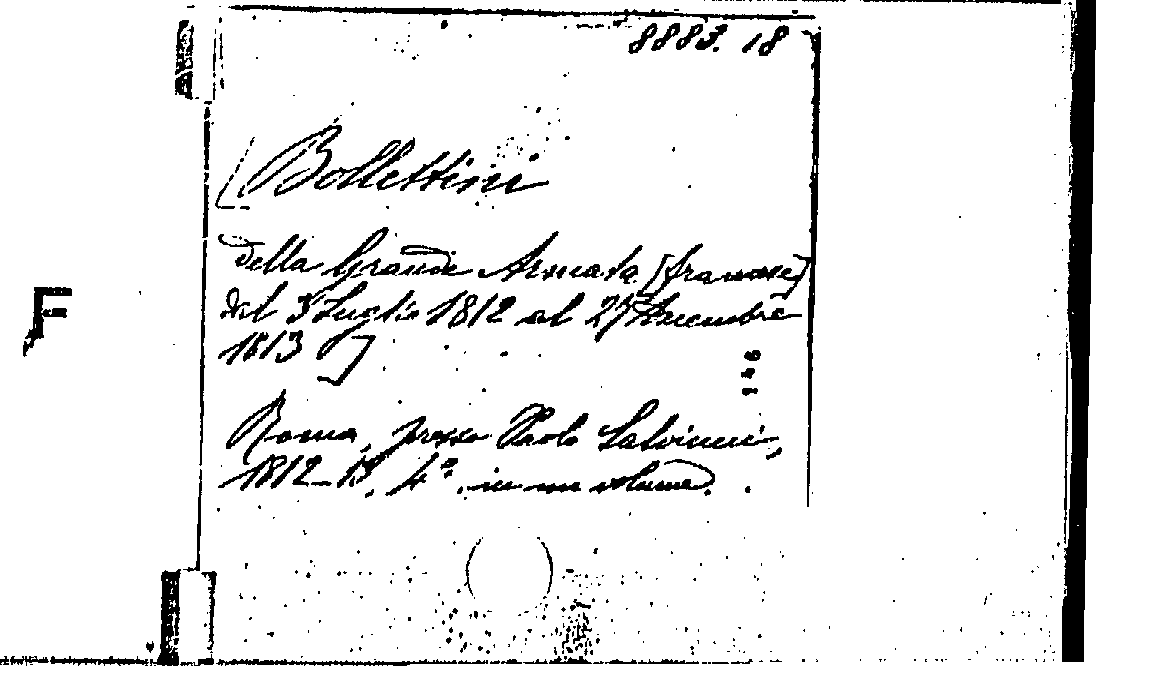 8883. 18
[Bollettini
della Grande Armata [francese]
dal 3 Luglio 1812 al 27 Dicembre
1813]
F
Roma, presso Paolo Salviucci,
1812-13, 4º. in un volume.